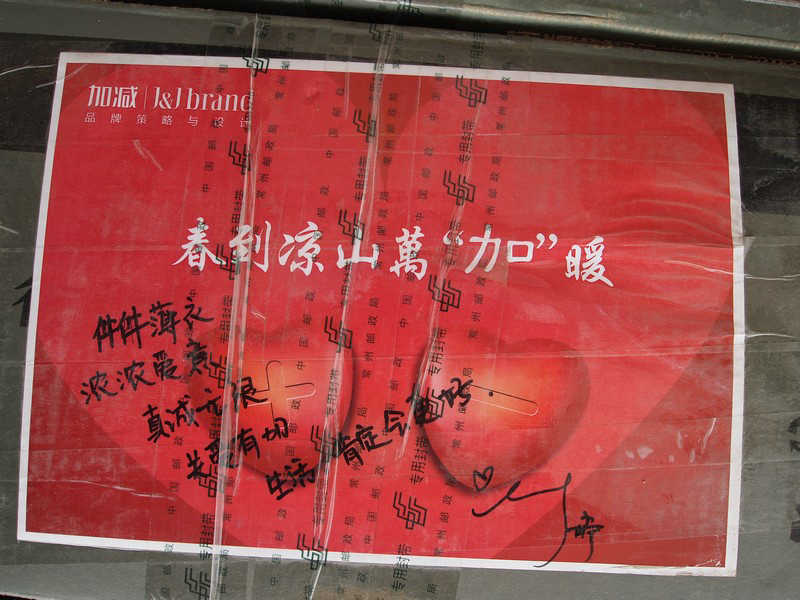 加减 J&J brand
品牌策略与设计
春到凉山萬“加”暖
件件薄衣
浓浓爱意
真诚无限
关爱有切
生活 肯定会更好
中国邮政 常州邮政局 专用封带